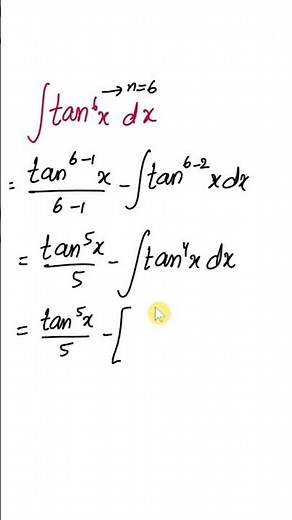 → n=6
∫tan⁶x dx
= tan⁶⁻¹x / 6-1 - ∫tan⁶⁻²x dx
= tan⁵x / 5 - ∫tan⁴x dx
= tan⁵x / 5 - [